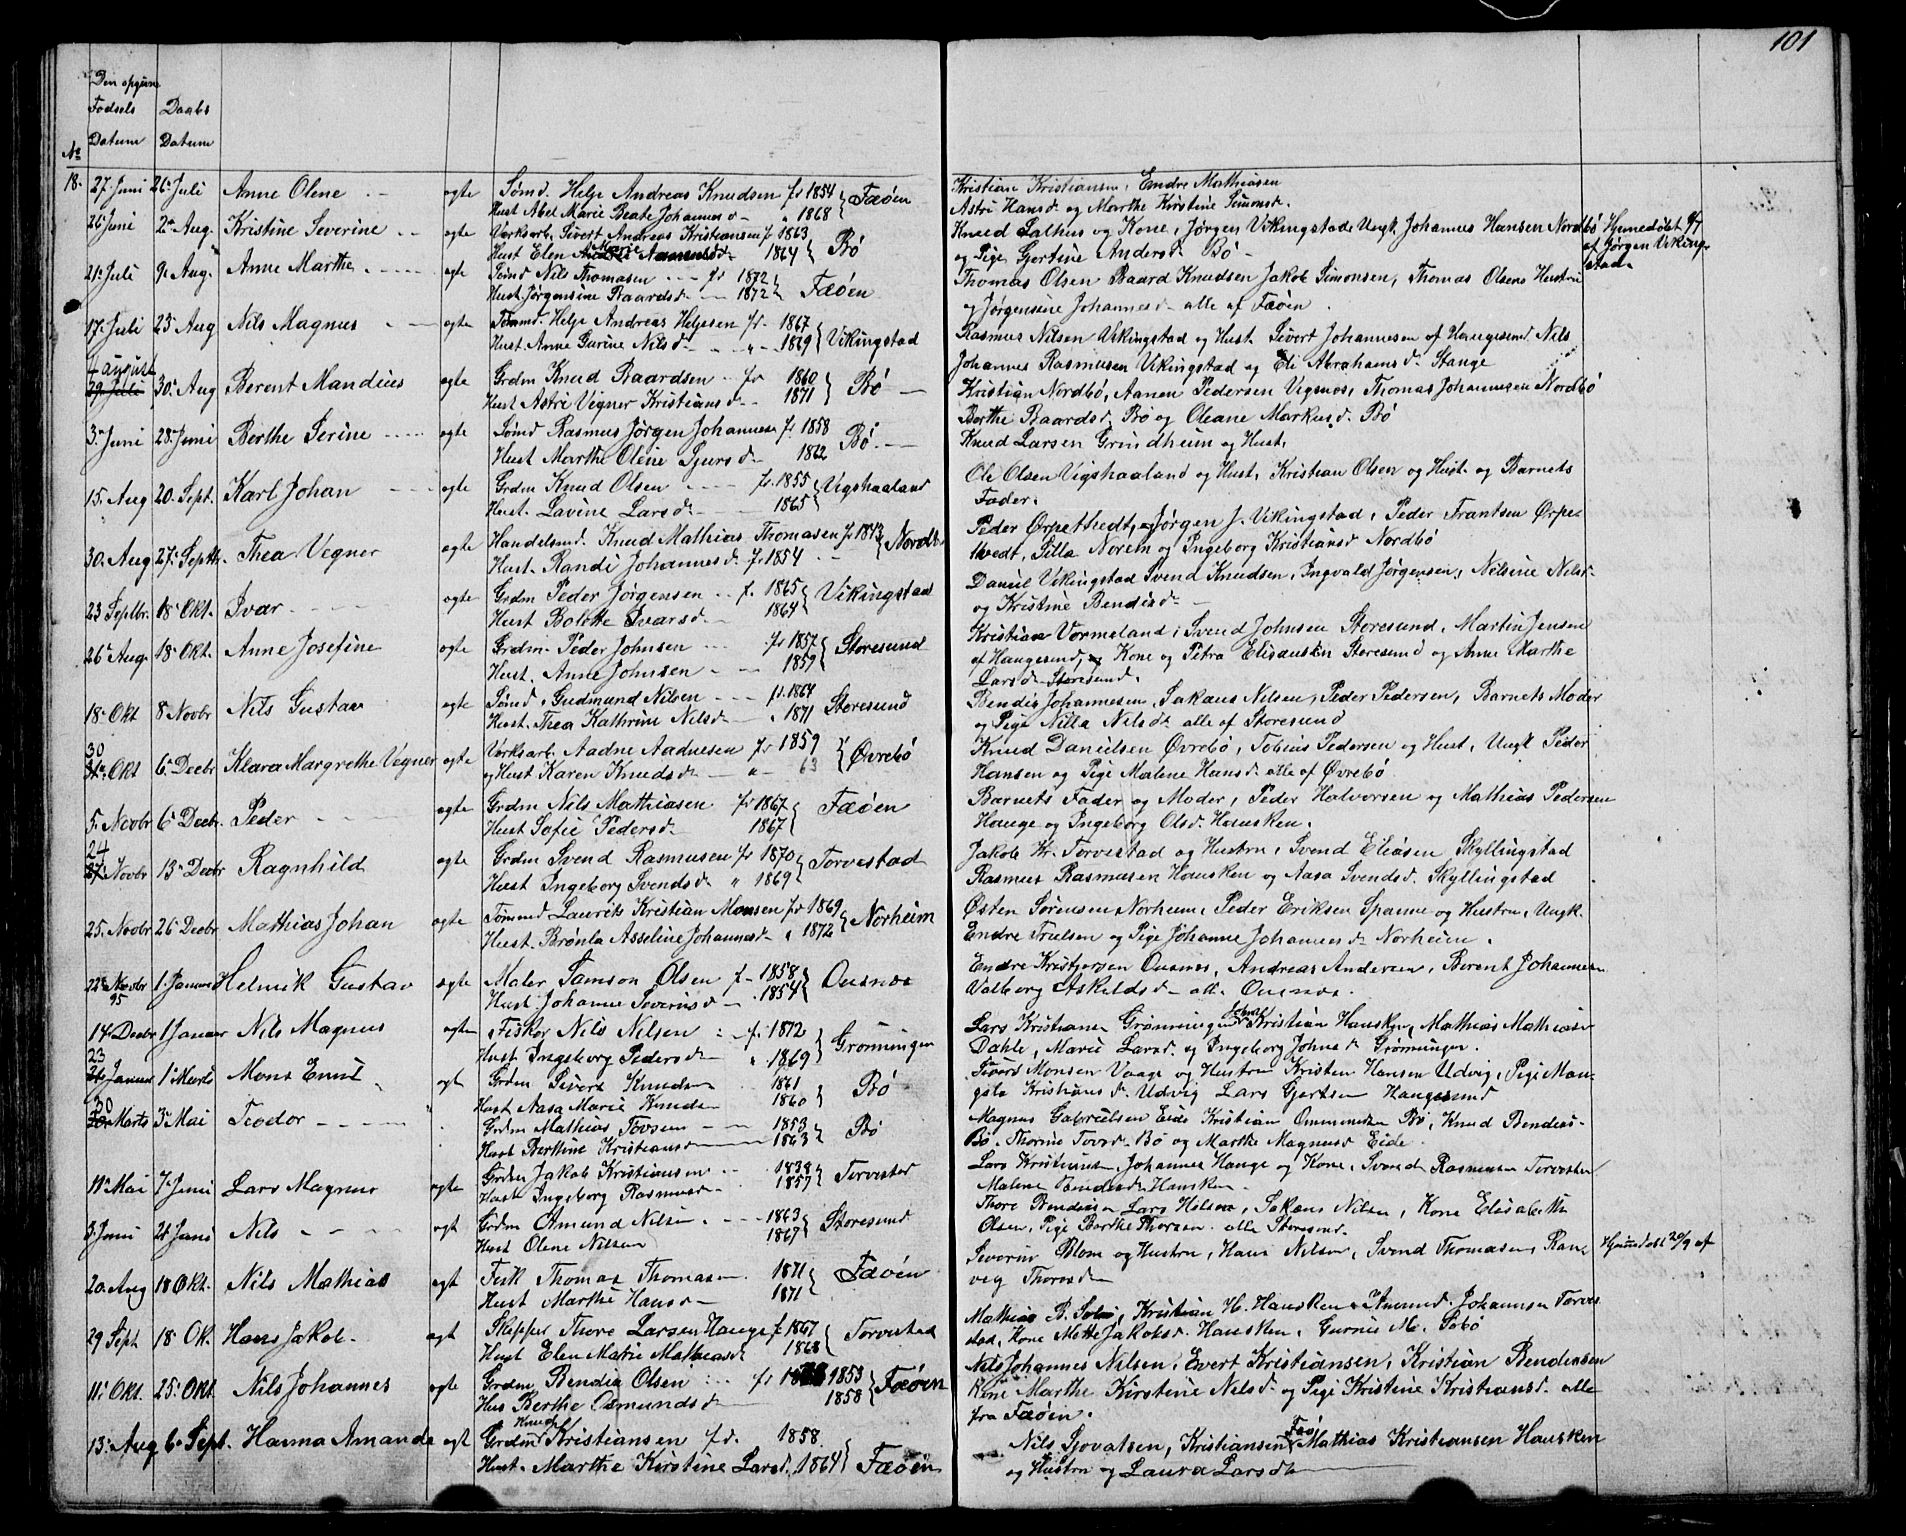 101
Den opgivne
Fødsels Daabs
Datum Datum
No
18. 27. Juni 26 Juli Anne Olene ægte Sømd. Helje Andreas Knudsen fr 1854 Fæøen
Hust Abel Marie Beate Johannesd " 1868
Kristian Kristiansen, Endre Mathiasen
Astri Hansd og Marthe Kirstine Simonsd.
26 Juni 2den Aug. Kristine Severine ægte Værksarb. Sivert Andreas Kristiansen f 1863 Bø
Hust Elen Marie 1864
Knud Salhus og Kone, Jørgen Vikingstad Ungk Johannes Hansen Nordbø
og Pige Gjertine Andersd Bø
Hjemmedøbt
af Jørgen Viking-
stad
21. Juli 9. Aug. Anne Marthe ægte Sømd Nils Thomasen fr 1872 Fæøen
Hust. Jørgensine Baardsd 1872
Thomas Olsen Baard Knudsen Jakob Simonsen, Thomas Olsens Hustru
og Jørgensine Johannesd alle af Fæøen
17. Juli 23 Aug Nils Magnus ægte Tømmd. Helje Andreas Helgesen fr. 1867 Vikingstad
Hust. Anne Gurine Nilsd " 1869
Rasmus Nilsen Vikingstad og Hust Sivert Johannesen af Haugesund Nils
Johannes Rasmusen Vikingstad og Eli Abrahamsd. Stange
4 august
29 Juli 30. Aug Berent Mandius ægte Grdm Knud Baardsen fr 1860 Bø
Hust Astri Vegner Kristiansd 1871
Kristian Nordbø, Aanen Pedersen Vigsnes, Thomas Johannesen Nordbø
Berthe Baardsd. Bø og Oleane Markusd. Bø
3. Juni 28. Juni Berthe Serine ægte Sømd Rasmus Jørgen Johannesen f. 1858 Bø
Hust Marthe Olene Sjursd 1862
Knud Larsen Grindheim og Hust.
15. Aug 20. Sept. Karl Johan ægte Grdm Knud Olsen fr. 1855 Vigshaaland
Hust. Lavine Larsd 1865
Ole Olsen Vigshaaland og Hust, Kristian Olsen og Hust. og Barnets
Fader.
30. Aug 27. Septbr. Thea Vegner ægte Handelsmd. Knud Mathias Thomasen fr 1843 Nordbø
Hust. Randi Johannesd. f. 1854
Peder Ørpethvedt, Jørgen J. Vikingstad, Peder Frantsen Ørpe-
thvedt, Silla Norem og Ingeborg Kristiansd Nordbø
23 Septbr. 18. Okt. Ivar ægte Grdm Peder Jørgensen f. 1865 Vikingstad
Hust Bolette Ivarsd 1864
Daniel Vikingstad Svend Knudsen, Ingvald Jørgensen, Nilsine Nilsd.
og Kristine Bendixd
26 Aug. 18. Okt. Anne Josefine ægte Grdm. Peder Johnsen fr 1857 Storesund
Hust. Anne Johnsen 1859
Kristian Vormeland, Svend Johnsen Storesund, Martin Jensen
af Haugesund, og Kone og Petra Storesund og Anne Marthe
Larsd Storesund.
18. Okt 8 Novbr Nils Gustav ægte Sømd. Gudmund Nilsen fr. 1864 Storesund
Hust. Thea Kathrine Nilsd 1871
Bendix Johannesen, Sakaus Nilsen, Peder Pedersen, Barnets Moder
og Pige Nilla Nilsd alle af Storesund
30
Okt 6. Decbr Klara Margrethe Vegner ægte Værksarb. Aadne Aadnesen fr 1859 Øvrebø
og Hust Karen Knudsd " 63
Knud Danielsen Øvrebø, Tobius Pedersen og Hust, Ungk Peder
Hansen og Pige Malene Hansd. alle af Øvrebø
5. Novbr 6 Decbr. Peder ægte Grdm Nils Mathiasen fr 1867 Fæøen
Hust Sofie Pedersd 1867
Barnets Fader og Moder, Peder Halvorsen og Mathias Pedersen
Hauge og Ingeborg Olsd. Hausken.
24
27. Novbr 13 Decbr Ragnhild ægte Grdm Svend Rasmusen fr 1870 Torvestad
Hust Ingeborg Svendsd " 1869
Jakob Kr. Torvestad og Hustru, Svend Eliasen Skyllingstad
Rasmus Rasmusen Hausken og Aasa Svendsd. Skyllingstad
25. Novbr 26 Decbr Mathias Johan ægte Tømmd Laurits Kristian Monsen fr 1869 Norheim
Hust. Brønla Asseline Johannesd 1872
Østen Sørensen Norheim, Peder Eriksen Spanne og Hustru, Ungk.
Endre Truelsen og Pige Johanne Johannesd Norheim.
22 Novbr 95 1. Januar Helmik Gustav ægte Maler Samson Olsen f 1858 Ousnes
Hust Johanne Severinsd 1854
Endre Kristjersen Ousnes, Andreas Andersen, Berent Johannesen
Valborg Askeldsd alle Ousnes.
14 Decbr 1 Januar Nils Magnus ægte Fisker Nils Nilsen f. 1872 Grønningen
Hust Ingeborg Pedersd 1869
Lars Kristiansen Grønningen Kristian Hausken, Mathias Mathiasen
Dahle, Marie Larsd. og Ingeborg Johnsd Grønningen.
23
Januar 1. Marts Mons Emil ægt Grdm Sivert Knudsen 1861 Bø
Hust Aasa Marie Knudsen 1860
Sivert Monsen Vaage og Hustru Kristen Hansen Udvig, Pige Man-
gela Kristiansd. Udvig Lars Gjertsen Haugesund
30
Marts 3 Mai Teodor Grdm Mathias Tovsen 1853 Bø
Hust Berthine Kristiansd 1863
Magnus Gabrielsen Eide Kristian Ommundsen Bø, Knud Bendixs-
Bø. Thorine Tovsd. Bø og Marthe Magnusd Eide.
11. Mai 7. Juni Lars Magnus ægte Grdm Jakob Kristiansen 1838 Torvestad
Hust Ingeborg Rasmusd 1857
Lars Kristiansen, Johannes Hauge og Kone, Svend Rasmusen Torvestad
Malene Hausken
3. Juni 21 Juni Nils ægt Grdm Amund Nilsen 1863 Storesund
Hust Olene Nilsen 1867
Thore Bendixsen Lars Nilsen, Sakaus Nilsen, Kone Elisabeth
Olsen, Pige Berthe Thorsen. alle Storesund.
20. Aug 18 Okt. Nils Mathias ægt Fisk Thomas Thomasen 1871 Fæøen
Hust Marthe Hansd 1871
Severin Blom og Hustru, Hans Nilsen, Svend Thomasen, Ran-
veg Thoresd
Hjemmedøbt 20/9 af
29 Sept 18. Ok. Hans Jakob ægt Skipper Thore Larsen Hauge f 1867 Torvestad
Hust Elen Marie Mathiasd 1868
Mathias B. Sobø, Kristian H. Hausken, Amund Johannsen Torve-
stad, Kone Mette Jakobsd. Hausken, Gurine M. Søbø
11. Okt. 25. Okt. Nils Johannes ægte Grdm Bendix Olsen fr 1853 Fæøen
Hus Berthe Osmundsd 1858
Nils Johannes Nilsen, Evert Kristiansen, Kristian Bendensen
Kone Marthe Kirstine Nilsd. og Pige Kristine Kristiansd. alle
fra Fæøen.
13. Aug 6. Sept. Hanna Amanda ægt Grdm Knud Kristiansen fd. 1858 Fæøen
Hust. Marthe Kirstine Larsd. 1864
Nils Sjovatsen, Kristiansen Fæø Mathias Kristiansen Hausken
og Hustru og Laura Larsd